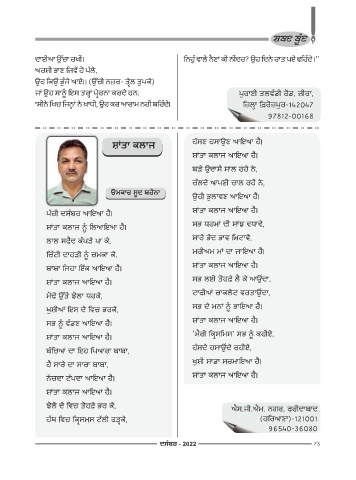 ਸ਼ਬਦ ਬੂੰਦ
ਦਾਈਆ ਉੱਚਾ ਰਖੀਂ।
ਅਰਸ਼ੀ ਭਾਣ ਜਿਵੇਂ ਹੋ ਪੱਲੇ,
ਉਹ ਕਿਉਂ ਭੁੰਜੇ ਆਏ।। (ਉੱਚੀ ਨਜ਼ਰ- ਤ੍ਰੇਲ ਤੁਪਕੇ)
ਜਾਂ ਉਹ ਸਾਨੂੰ ਇਸ ਤਰ੍ਹਾਂ ਪ੍ਰੇਰਨਾ ਕਰਦੇ ਹਨ:
'ਸੀਨੇ ਖਿਚ ਜਿਨ੍ਹਾਂ ਨੇ ਖਾਧੀ, ਉਹ ਕਰ ਆਰਾਮ ਨਹੀਂ ਬਹਿੰਦੇ।
ਨਿਹੁੰ ਵਾਲੇ ਨੈਣਾਂ ਕੀ ਨੀਂਦਰ? ਉਹ ਦਿਨੇ ਰਾਤ ਪਏ ਵਹਿੰਦੇ।''
ਪੁਰਾਣੀ ਤਲਵੰਡੀ ਰੋਡ, ਜ਼ੀਰਾ,
ਜ਼ਿਲ੍ਹਾ ਫ਼ਿਰੋਜ਼ਪੁਰ-142047
97812-00168
ਸ਼ਾਂਤਾ ਕਲਾਜ
ਓਮਕਾਰ ਸੂਦ ਬਹੋਨਾ
ਪੱਚੀ ਦਸੰਬਰ ਆਇਆ ਹੈ।
ਸ਼ਾਂਤਾ ਕਲਾਜ ਨੂੰ ਲਿਆਇਆ ਹੈ।
ਲਾਲ ਸਫੈਦ ਕੱਪੜੇ ਪਾ ਕੇ,
ਚਿੱਟੀ ਦਾਹੜੀ ਨੂੰ ਚਮਕਾ ਕੇ,
ਬਾਬਾ ਜਿਹਾ ਇੱਕ ਆਇਆ ਹੈ।
ਸ਼ਾਂਤਾ ਕਲਾਜ ਆਇਆ ਹੈ।
ਮੋਢੇ ਉੱਤੇ ਝੋਲਾ ਧਰਕੇ,
ਖੁਸ਼ੀਆਂ ਇਸ ਦੇ ਵਿਚ ਭਰਕੇ,
ਸਭ ਨੂੰ ਵੰਡਣ ਆਇਆ ਹੈ।
ਸ਼ਾਂਤਾ ਕਲਾਜ ਆਇਆ ਹੈ।
ਬੱਚਿਆਂ ਦਾ ਇਹ ਪਿਆਰਾ ਬਾਬਾ,
ਹੈ ਸਾਰੇ ਦਾ ਸਾਰਾ ਬਾਬਾ,
ਨੱਚਦਾ ਟੱਪਦਾ ਆਇਆ ਹੈ।
ਸ਼ਾਂਤਾ ਕਲਾਜ ਆਇਆ ਹੈ।
ਝੋਲੇ ਦੇ ਵਿਚ ਤੋਹਫ਼ੇ ਭਰ ਕੇ,
ਹੱਥ ਵਿਚ ਕ੍ਰਿਸਮਸ ਟੱਲੀ ਫੜ੍ਹਕੇ,
ਹੱਸਣ ਹਸਾਉਣ ਆਇਆ ਹੈ।
ਸ਼ਾਂਤਾ ਕਲਾਜ ਆਇਆ ਹੈ।
ਬੜੇ ਉਦਾਸੇ ਸਾਲ ਰਹੇ ਨੇ,
ਚੱਲਦੇ ਆਪਣੀ ਚਾਲ ਰਹੇ ਨੇ,
ਉਹੀ ਭੁਲਾਵਣ ਆਇਆ ਹੈ।
ਸ਼ਾਂਤਾ ਕਲਾਜ ਆਇਆ ਹੈ।
ਸਭ ਧਰਮਾਂ ਦੀ ਸਾਂਝ ਵਧਾਵੇ,
ਸਾਰੇ ਭੇਦ ਭਾਵ ਮਿਟਾਵੇ,
ਮਰੀਅਮ ਮਾਂ ਦਾ ਜਾਇਆ ਹੈ।
ਸ਼ਾਂਤਾ ਕਲਾਜ ਆਇਆ ਹੈ।
ਸਭ ਲਈ ਤੋਹਫ਼ੇ ਲੈ ਕੇ ਆਉਂਦਾ,
ਟਾਫੀਆਂ ਚਾਕਲੇਟ ਵਰਤਾਉਂਦਾ,
ਸਭ ਦੇ ਮਨਾਂ ਨੂੰ ਭਾਇਆ ਹੈ।
ਸ਼ਾਂਤਾ ਕਲਾਜ ਆਇਆ ਹੈ।
'ਮੈਰੀ ਕ੍ਰਿਸਮਿਸ' ਸਭ ਨੂੰ ਕਹੀਏ,
ਹੱਸਦੇ ਹਸਾਉਂਦੇ ਰਹੀਏ,
ਖੁਸ਼ੀ ਸਾਡਾ ਸਰਮਾਇਆ ਹੈ।
ਸ਼ਾਂਤਾ ਕਲਾਜ ਆਇਆ ਹੈ।
ਐਸ.ਜੀ.ਐਮ. ਨਗਰ, ਫਰੀਦਾਬਾਦ
(ਹਰਿਆਣਾ)-121001
96540-36080
ਦਸੰਬਰ - 2022
73